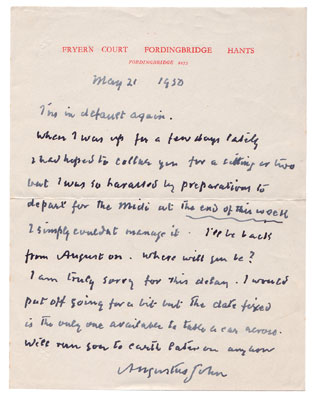 FRYERN COURT FORDINGBRIDGE HANTS
FORDINGBRIDGE
May 21 1950
I'm in default again.
When I was up for a few days lately
I had hoped to collar you for a sitting or two
but I was so harassed by preparations to
depart for the Midi at the end of this week
I simply couldn't manage it. I'll be back
from August on. Where will you be?
I am truly sorry for this delay. I would
put off going for a bit but the date fixed
is the only one available to take a car across.
Will run you to earth later on anyhow
Augustus John